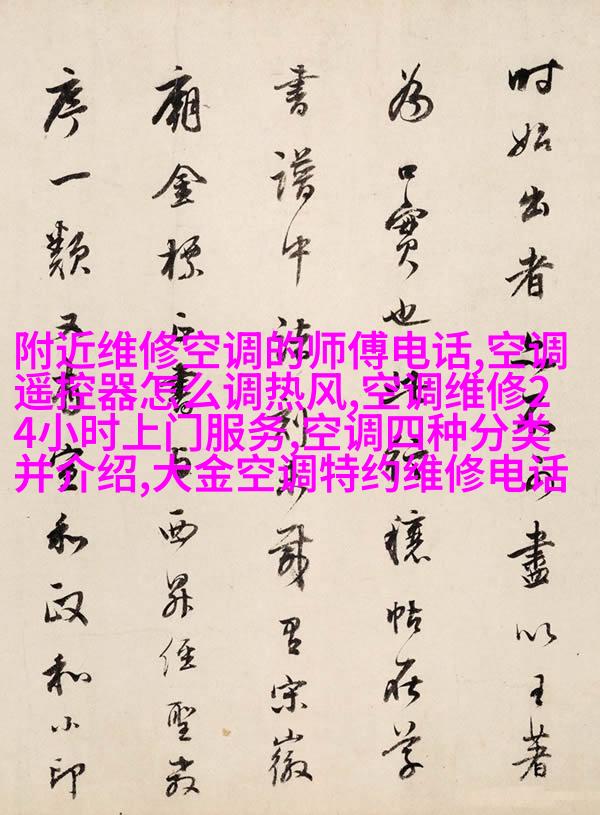 附近维修空调的师傅电话,空调
遥控器怎么调热风,空调维修2
4小时上门服务,空调四种分类
并介绍,大金空调特约维修电话
时始出者盡以王著
為口實也此穠帖在学
書譜中宋徽
廟金標書西昇經聖教
序一類又有宣和政和小印